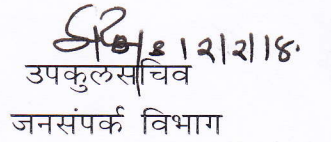 १२/२/१८.
उपकुलसचिव
जनसंपर्क विभाग